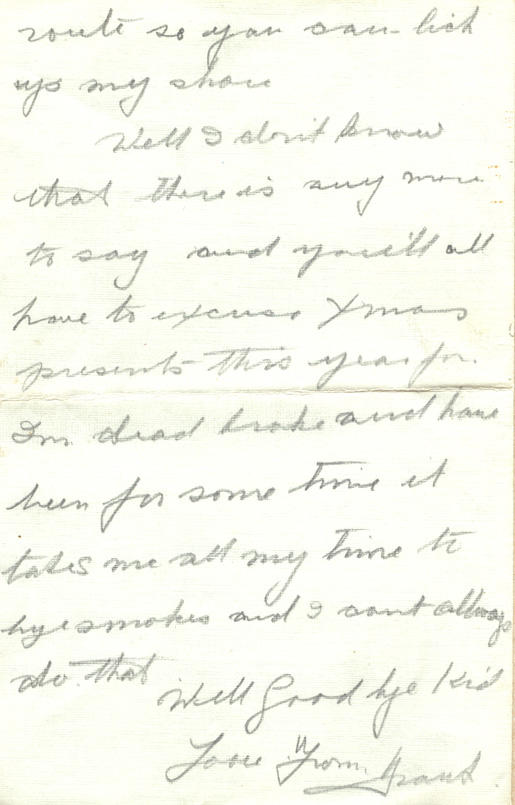 route so you can lick
up my share
Well I don't know
that there is any more
to say and you'll all
have to excuse Xmas
presents this year for
I'm dead broke and have
been for some time it
takes me all my time to
bye smokes and I cant allways
do that
Well Good bye Kid
Love From Grant